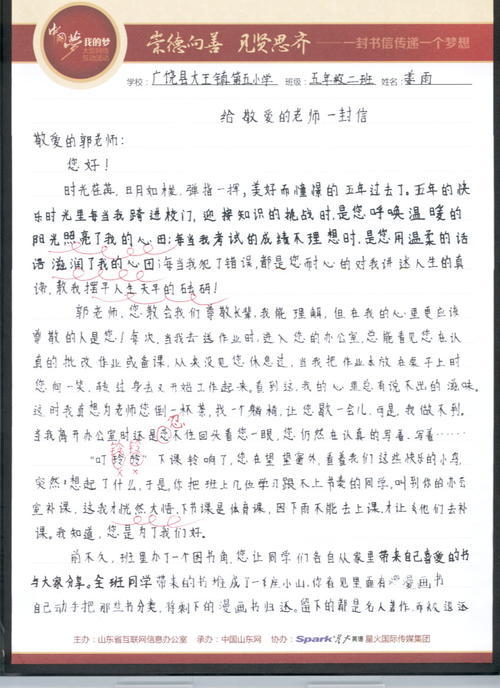 中国梦 我的梦
大型网络
互动活动
崇德向善 见贤思齐 ——一封书信传递一个梦想
学校：广饶县大王镇第五小学 班级：五年级二班 姓名：姜雨
给敬爱的老师一封信
敬爱的郭老师：
您好！
时光荏苒，日月如梭，弹指一挥，美好而懂憬的五年过去了。五年的快
乐时光里每当我踏进校门，迎接知识的挑战时，是您呼唤温暖的
阳光照亮了我的心田；每当我考试的成绩不理想时，是您用温柔的话
语滋润了我的心田；每当我犯了错误，都是您耐心的对我讲述人生的真
谛，教我摆平人生天平的砝码！
郭老师，您教会我们尊敬长辈，我能理解，但在我的心里更应该
尊敬的人是您！每次，当我去送作业时，进入您的办公室，总能看见您在认
真的批改作业或备课，从来没见您休息过，当我把作业本放在桌子上时
您向一笑，转过身去又开始工作起来。直到这，我的心里总有说不出的滋味。
这时我真想为老师您倒一杯茶，找一个躺椅，让您歇一会儿，可是，我做不到。
当我离开办公室时还是忍不住回头看您一眼，您仍然在认真的写着，写着……
“叮铃铃”下课铃响了，您在望望窗外，看着我们这些快乐的小鸟，
突然想起了什么，于是，你把班上几位学习跟不上书卖的同学，叫到你的办公
室补课，这我才恍然大悟，下节课是体育课，因下雨不能去上课，才让他们去补
课。我知道，您是为了我们好。
前不久，班里办了一个图书角，您让同学们各自从家里带来自己喜爱的书
与大家分享。全班同学带来的书堆成了一座小山，你看见里面有漫画书
自己动手把那些书分类，将剩下的漫画书归还。留下的都是名人著作，而
主办：山东省互联网信息办公室 承办：中国山东网 协办：Spark 星火英语 星火国际传媒集团